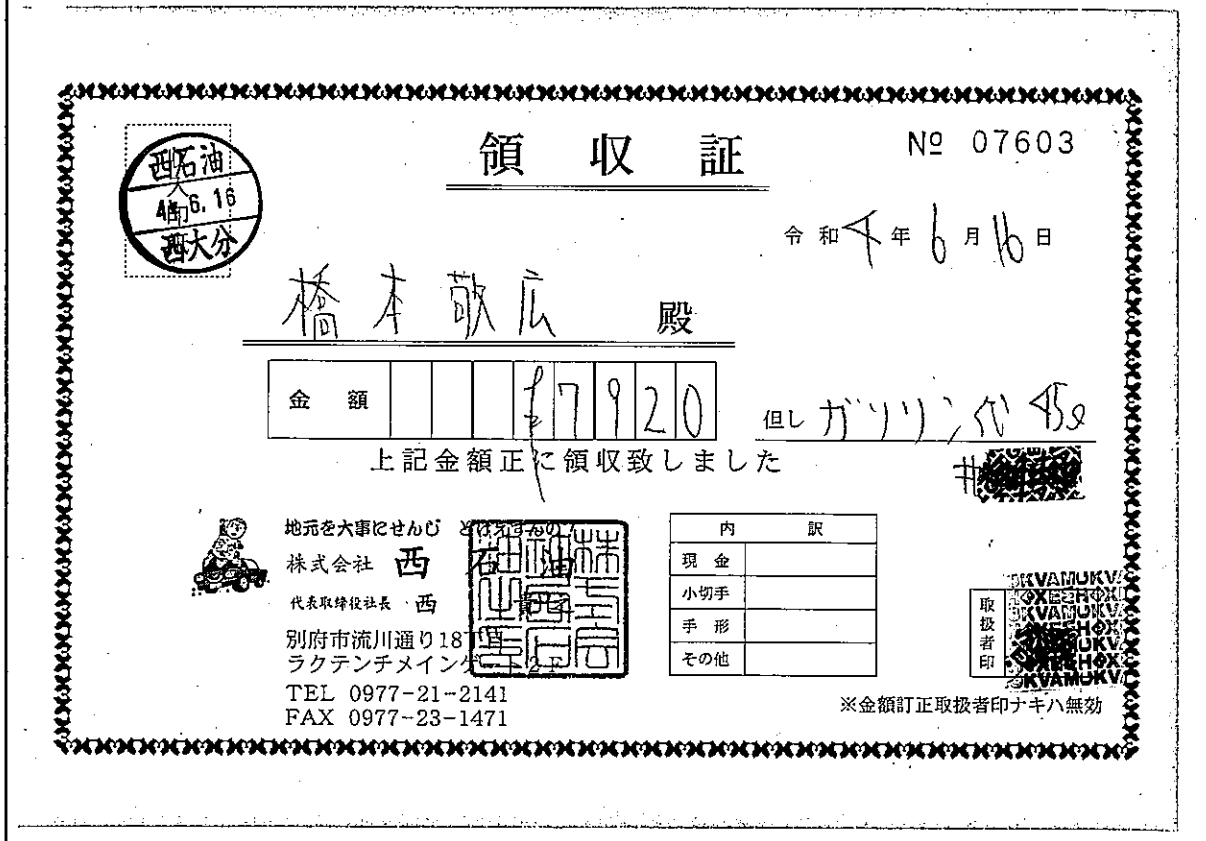 領収証
№ 07603
西石油
4. 6. 16
西大分
令和4年6月16日
橋本敬広 殿
金額 ¥7920
但し ガソリン代 45ℓ
上記金額正に領収致しました
地元を大事にせんじ どげえすんの!
株式会社 西石油
代表取締役社長 西
別府市流川通り18丁目
ラクテンチメインゲート2F
TEL 0977-21-2141
FAX 0977-23-1471
内訳
現金
小切手
手形
その他
取扱者印
※金額訂正取扱者印ナキハ無効